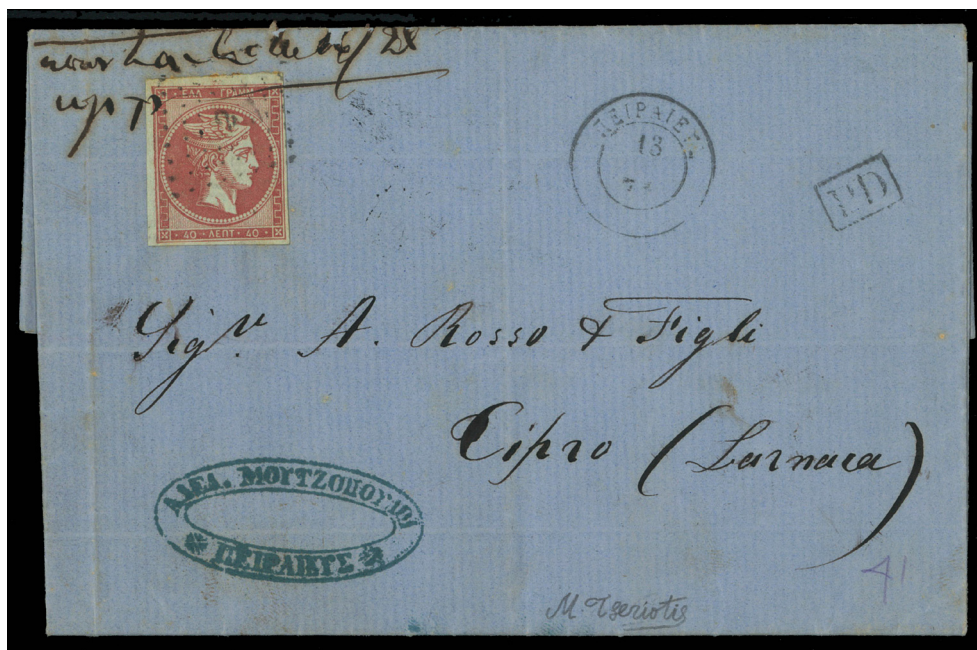 ΕΛΛ ΓΡΑΜΜ
40 ΛΕΠΤ 40
ΠΕΙΡΑΙΕΥΣ
13
PD
Sigr. A. Rosso & Figli
Cipro (Larnaca)
ΑΔΕΛ. ΜΟΥΤΖΟΠΟΥΛΟΙ
ΠΕΙΡΑΙΕΥΣ
41
M. Tseriotis